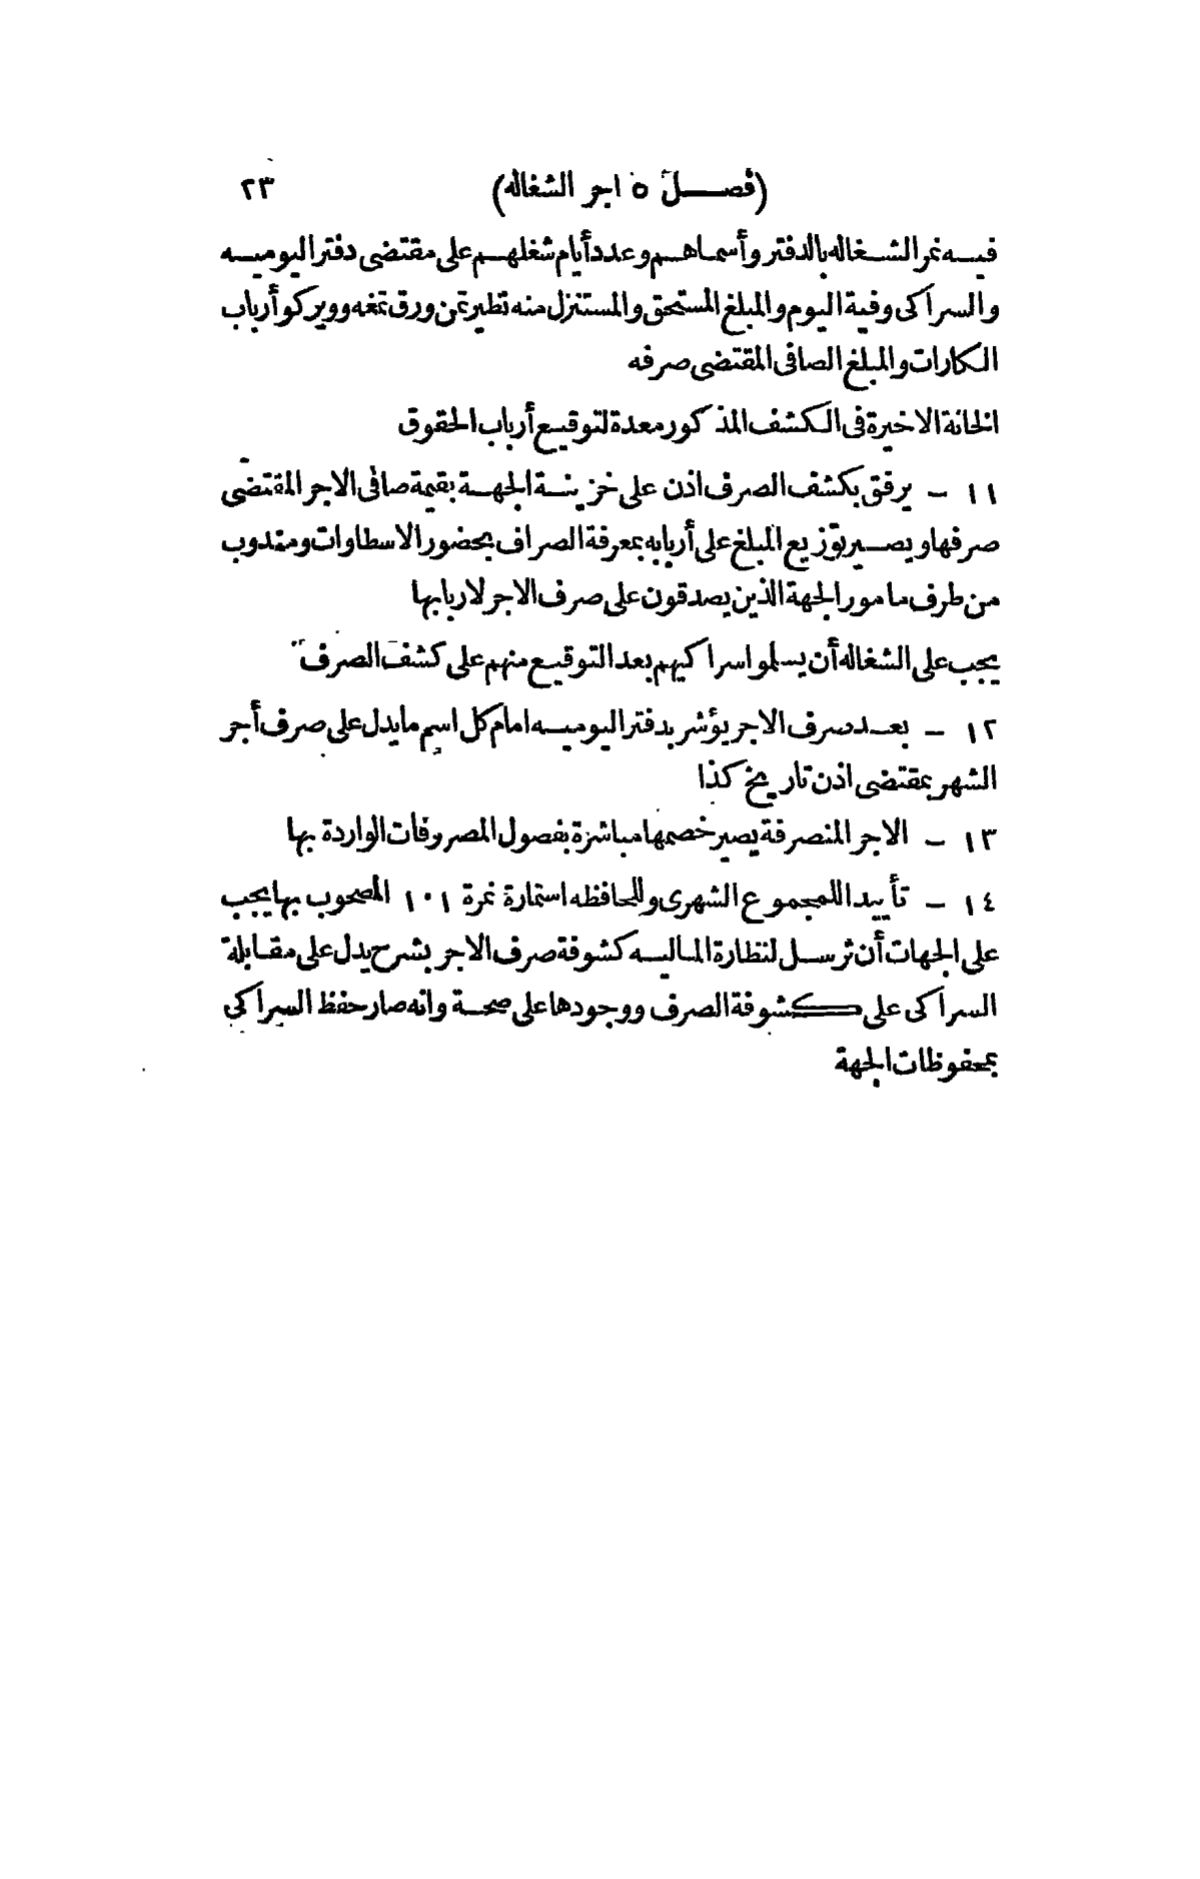 (فصل ٥ اجر الشغاله) ٢٣
فيه نمر الشغاله بالدفتر وأسماهم وعدد أيام شغلهم على مقتضى دفتر اليوميه
والسراكى وفية اليوم والمبلغ المستحق والمستنزل منه نظير ثمن ورق تمغه وويركو أرباب
الكارات والمبلغ الصافى المقتضى صرفه
الخانة الاخيرة فى الكشف المذكور معدة لتوقيع أرباب الحقوق
١١ – يرفق بكشف الصرف اذن على خزينة الجهة بقيمة صافى الاجر المقتضى
صرفها ويصير توزيع المبلغ على أربابه بمعرفة الصراف بحضور الاسطاوات ومندوب
من طرف مامور الجهة الذين يصدقون على صرف الاجر لاربابها
يجب على الشغاله أن يسلموا سراكيهم بعد التوقيع منهم على كشف الصرف
١٢ – بعد صرف الاجر يؤشر بدفتر اليوميه امام كل اسم مايدل على صرف أجر
الشهر بمقتضى اذن تاريخ كذا
١٣ – الاجر المنصرفة يصير خصمها مباشرة بفصول المصروفات الواردة بها
١٤ – تأييدا للمجموع الشهرى وللحافظه استمارة نمرة ١٠١ المصحوب بها يجب
على الجهات أن ترسل لنظارة الماليه كشوفة صرف الاجر بشرح يدل على مقابلة
السراكى على كشوفة الصرف ووجودها على صحة وانه صار حفظ السراكى
بمحفوظات الجهة